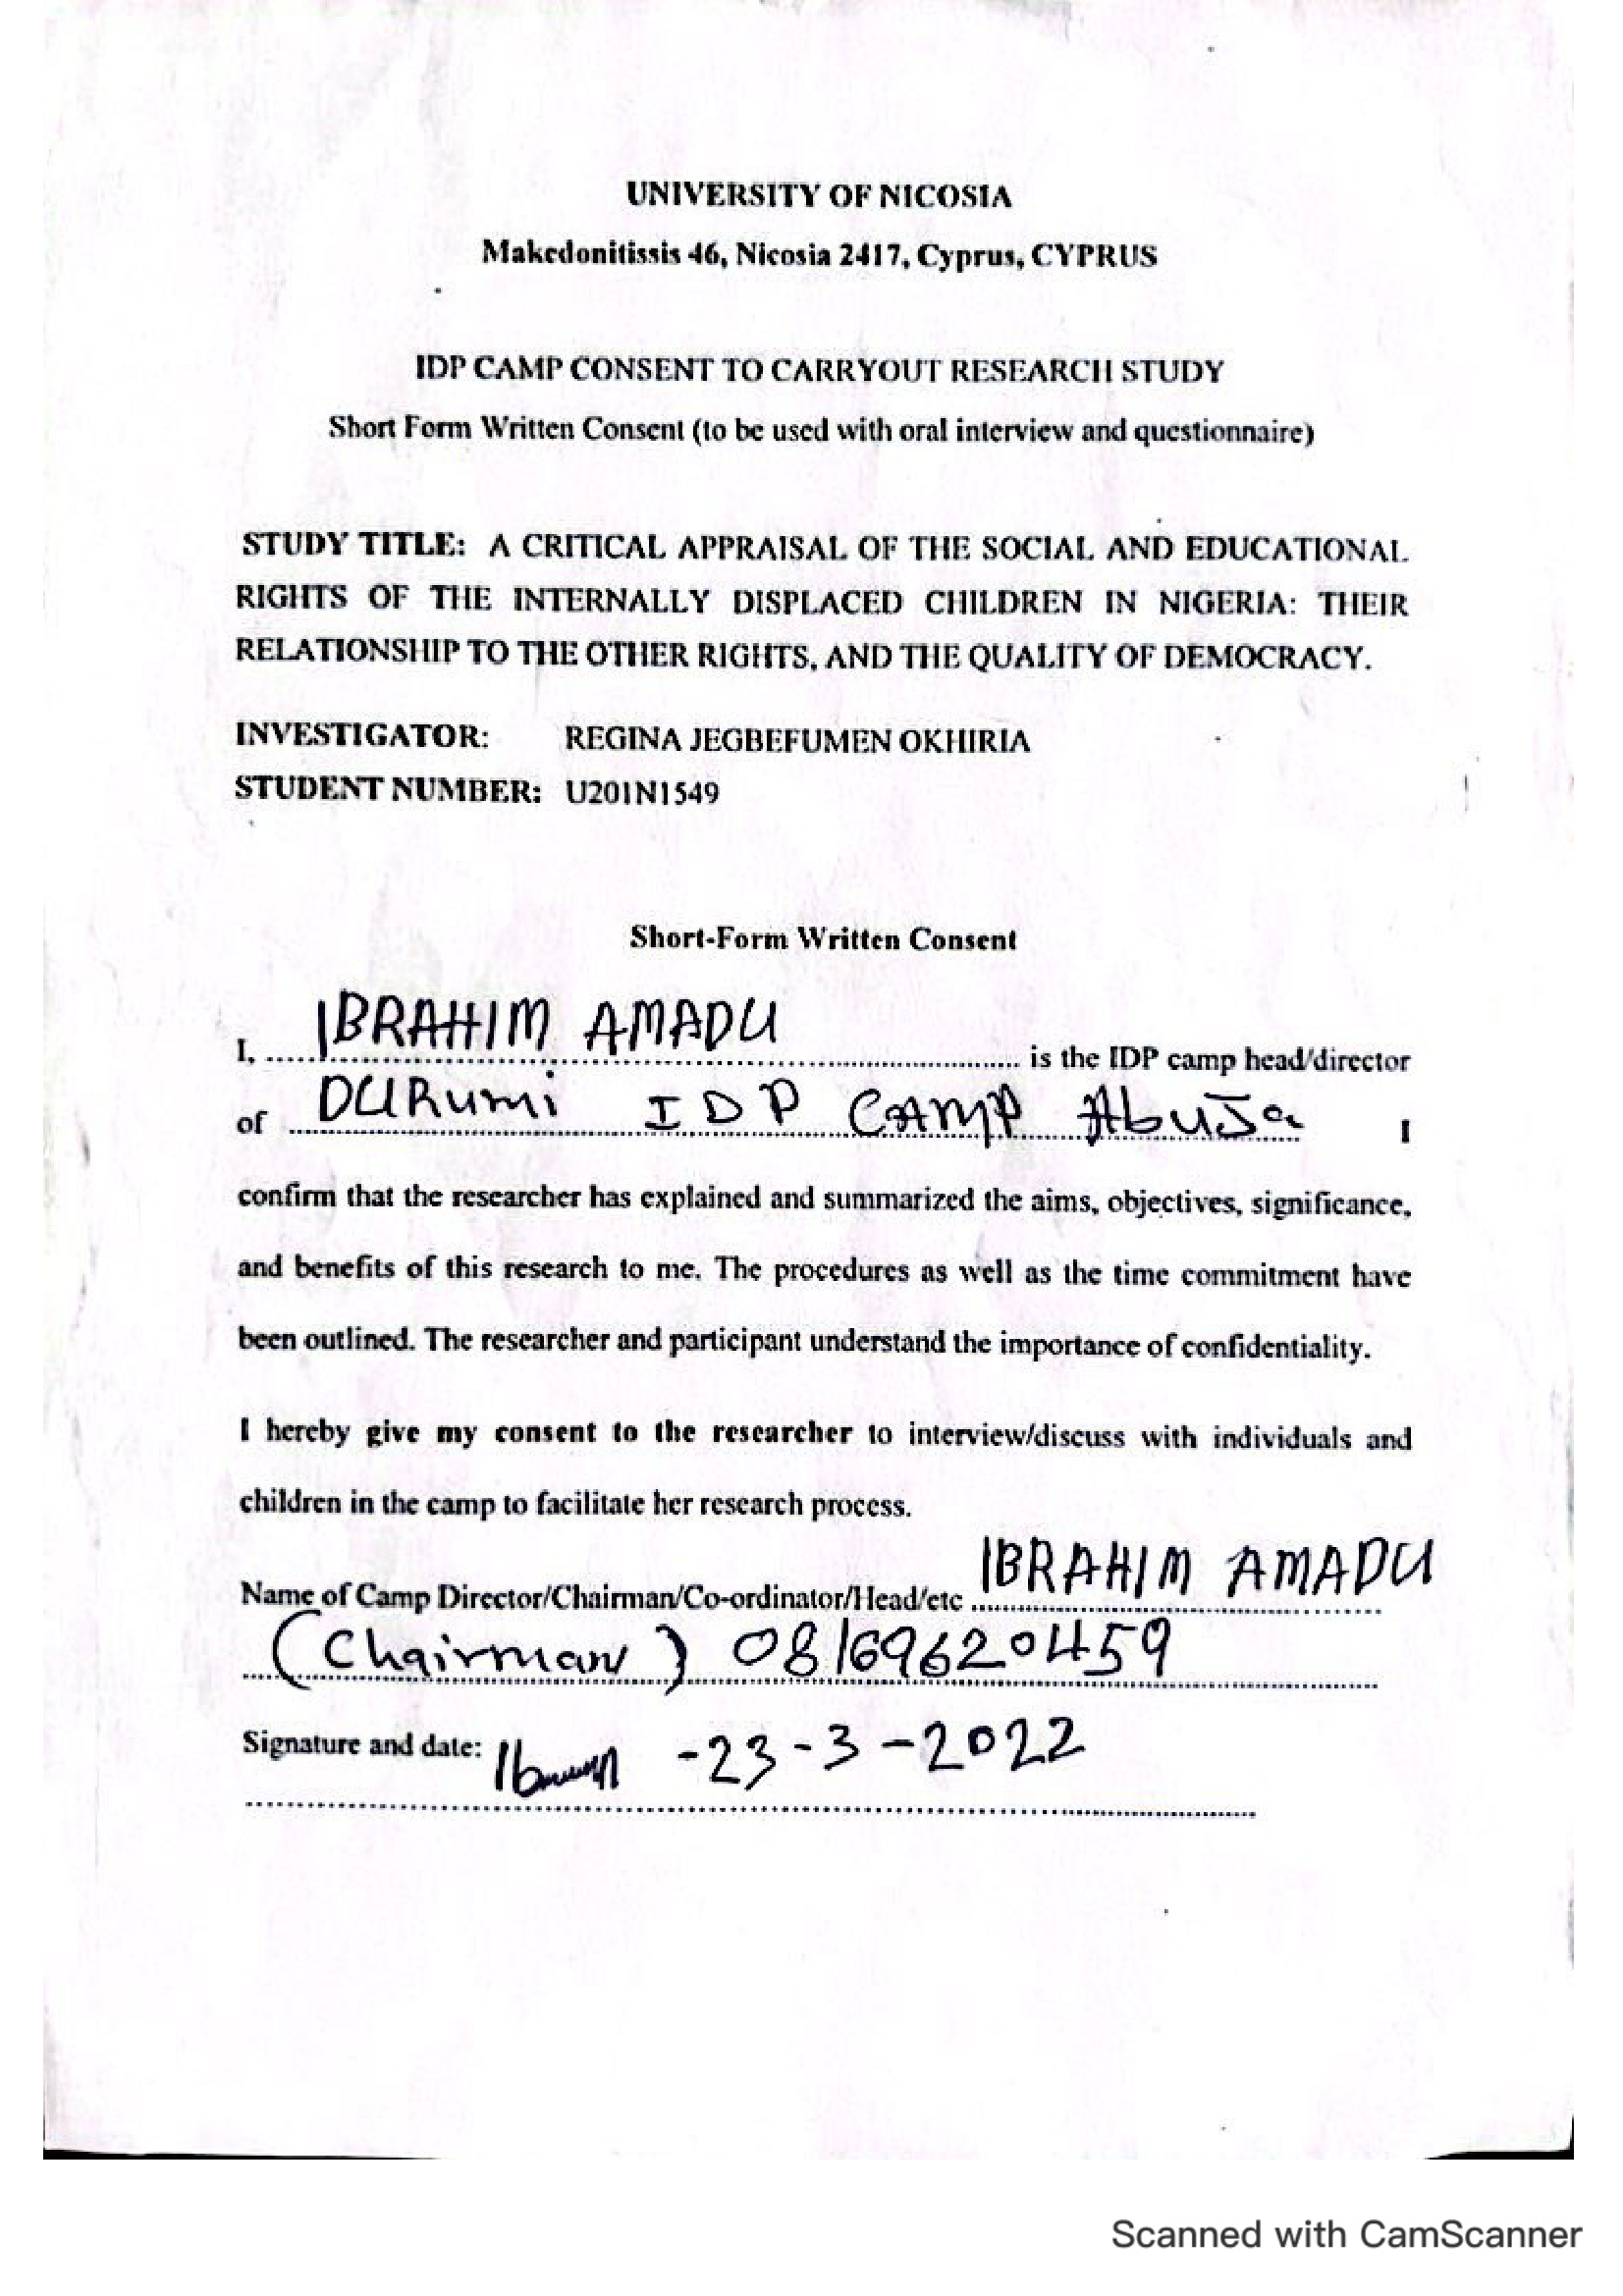 UNIVERSITY OF NICOSIA
Makedonitissis 46, Nicosia 2417, Cyprus, CYPRUS
IDP CAMP CONSENT TO CARRYOUT RESEARCH STUDY
Short Form Written Consent (to be used with oral interview and questionnaire)
STUDY TITLE: A CRITICAL APPRAISAL OF THE SOCIAL AND EDUCATIONAL
RIGHTS OF THE INTERNALLY DISPLACED CHILDREN IN NIGERIA: THEIR
RELATIONSHIP TO THE OTHER RIGHTS, AND THE QUALITY OF DEMOCRACY.
INVESTIGATOR: REGINA JEGBEFUMEN OKHIRIA
STUDENT NUMBER: U201N1549
Short-Form Written Consent
I, IBRAHIM AMADU is the IDP camp head/director
of DURumi IDP CAMP AbuJa I
confirm that the researcher has explained and summarized the aims, objectives, significance,
and benefits of this research to me. The procedures as well as the time commitment have
been outlined. The researcher and participant understand the importance of confidentiality.
I hereby give my consent to the researcher to interview/discuss with individuals and
children in the camp to facilitate her research process.
Name of Camp Director/Chairman/Co-ordinator/Head/etc IBRAHIM AMADU
(Chairman) 08169620459
Signature and date: -23-3-2022
Scanned with CamScanner